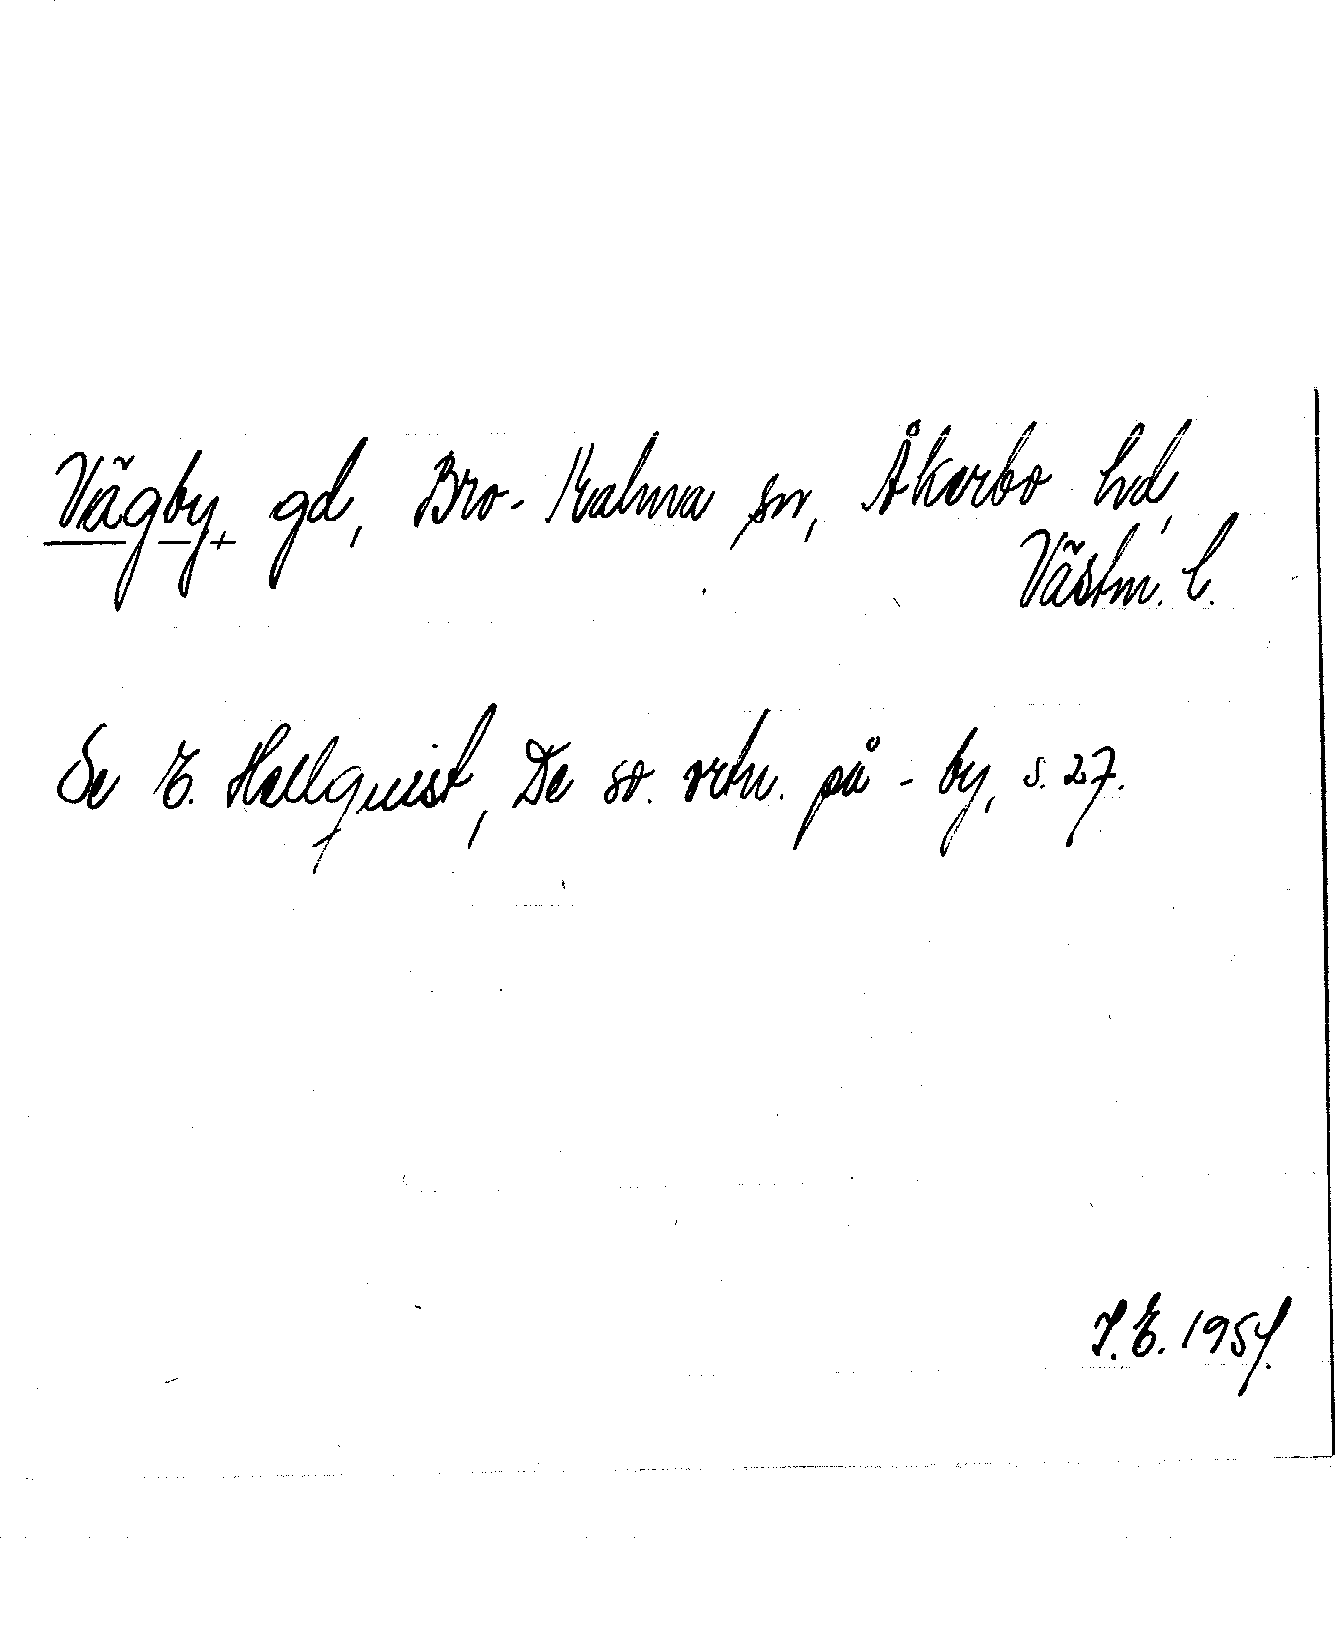 Vägby, gd, Bro-Malma sn, Åkerbo hd,
Västm. l.
Se E. Hellquist, De sv. ortn. på -by, s. 27.
I.E. 1954.